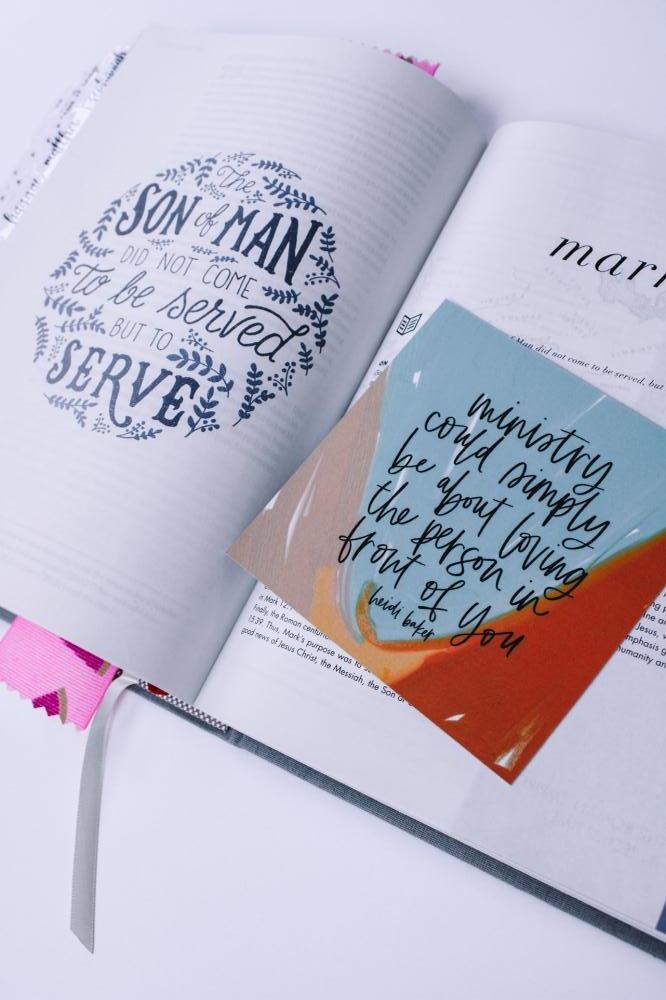 The
SON of MAN
DID NOT COME
to be served
BUT TO
SERVE
mark
Man did not come to be served, but
ON
ministry
could simply
be about loving
the person in
front of you
heidi baker
in Mark 12:
Finally, the Roman centurion
15:39. Thus, Mark's purpose was to
good news of Jesus Christ, the Messiah, the Son of
Jesus,
emphasis
humanity an